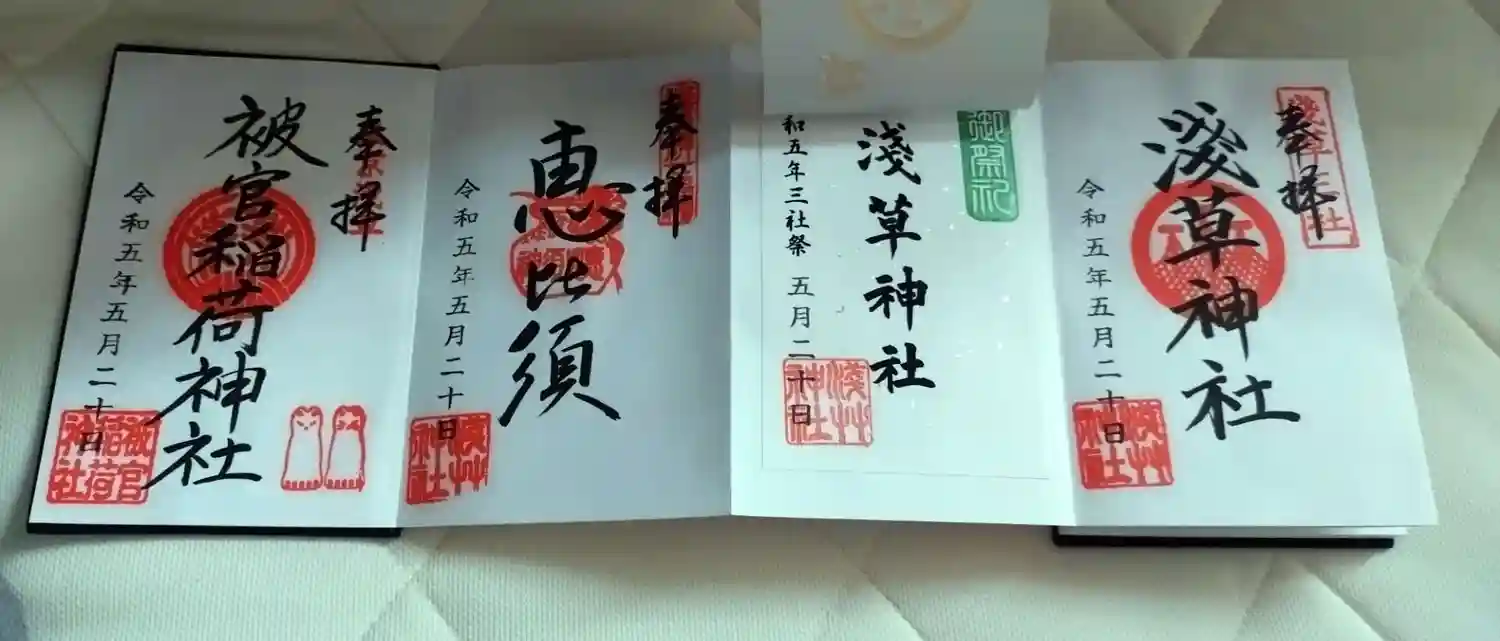 奉拝
淺草神社
令和五年五月二十日
御祭礼
淺草神社
和五年三社祭 五月二十日
淺艸神社
奉拝
恵比須
令和五年五月二十日
奉拝
被官稲荷神社
令和五年五月二十日
被官稲荷神社